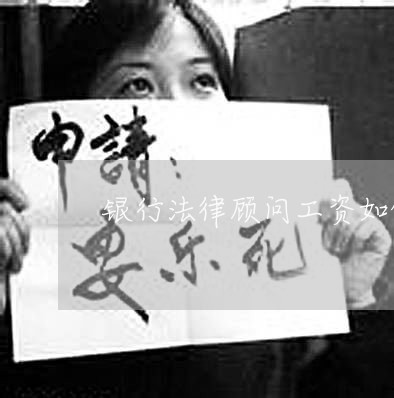 申請：
银行法律顾问工资如
安乐死